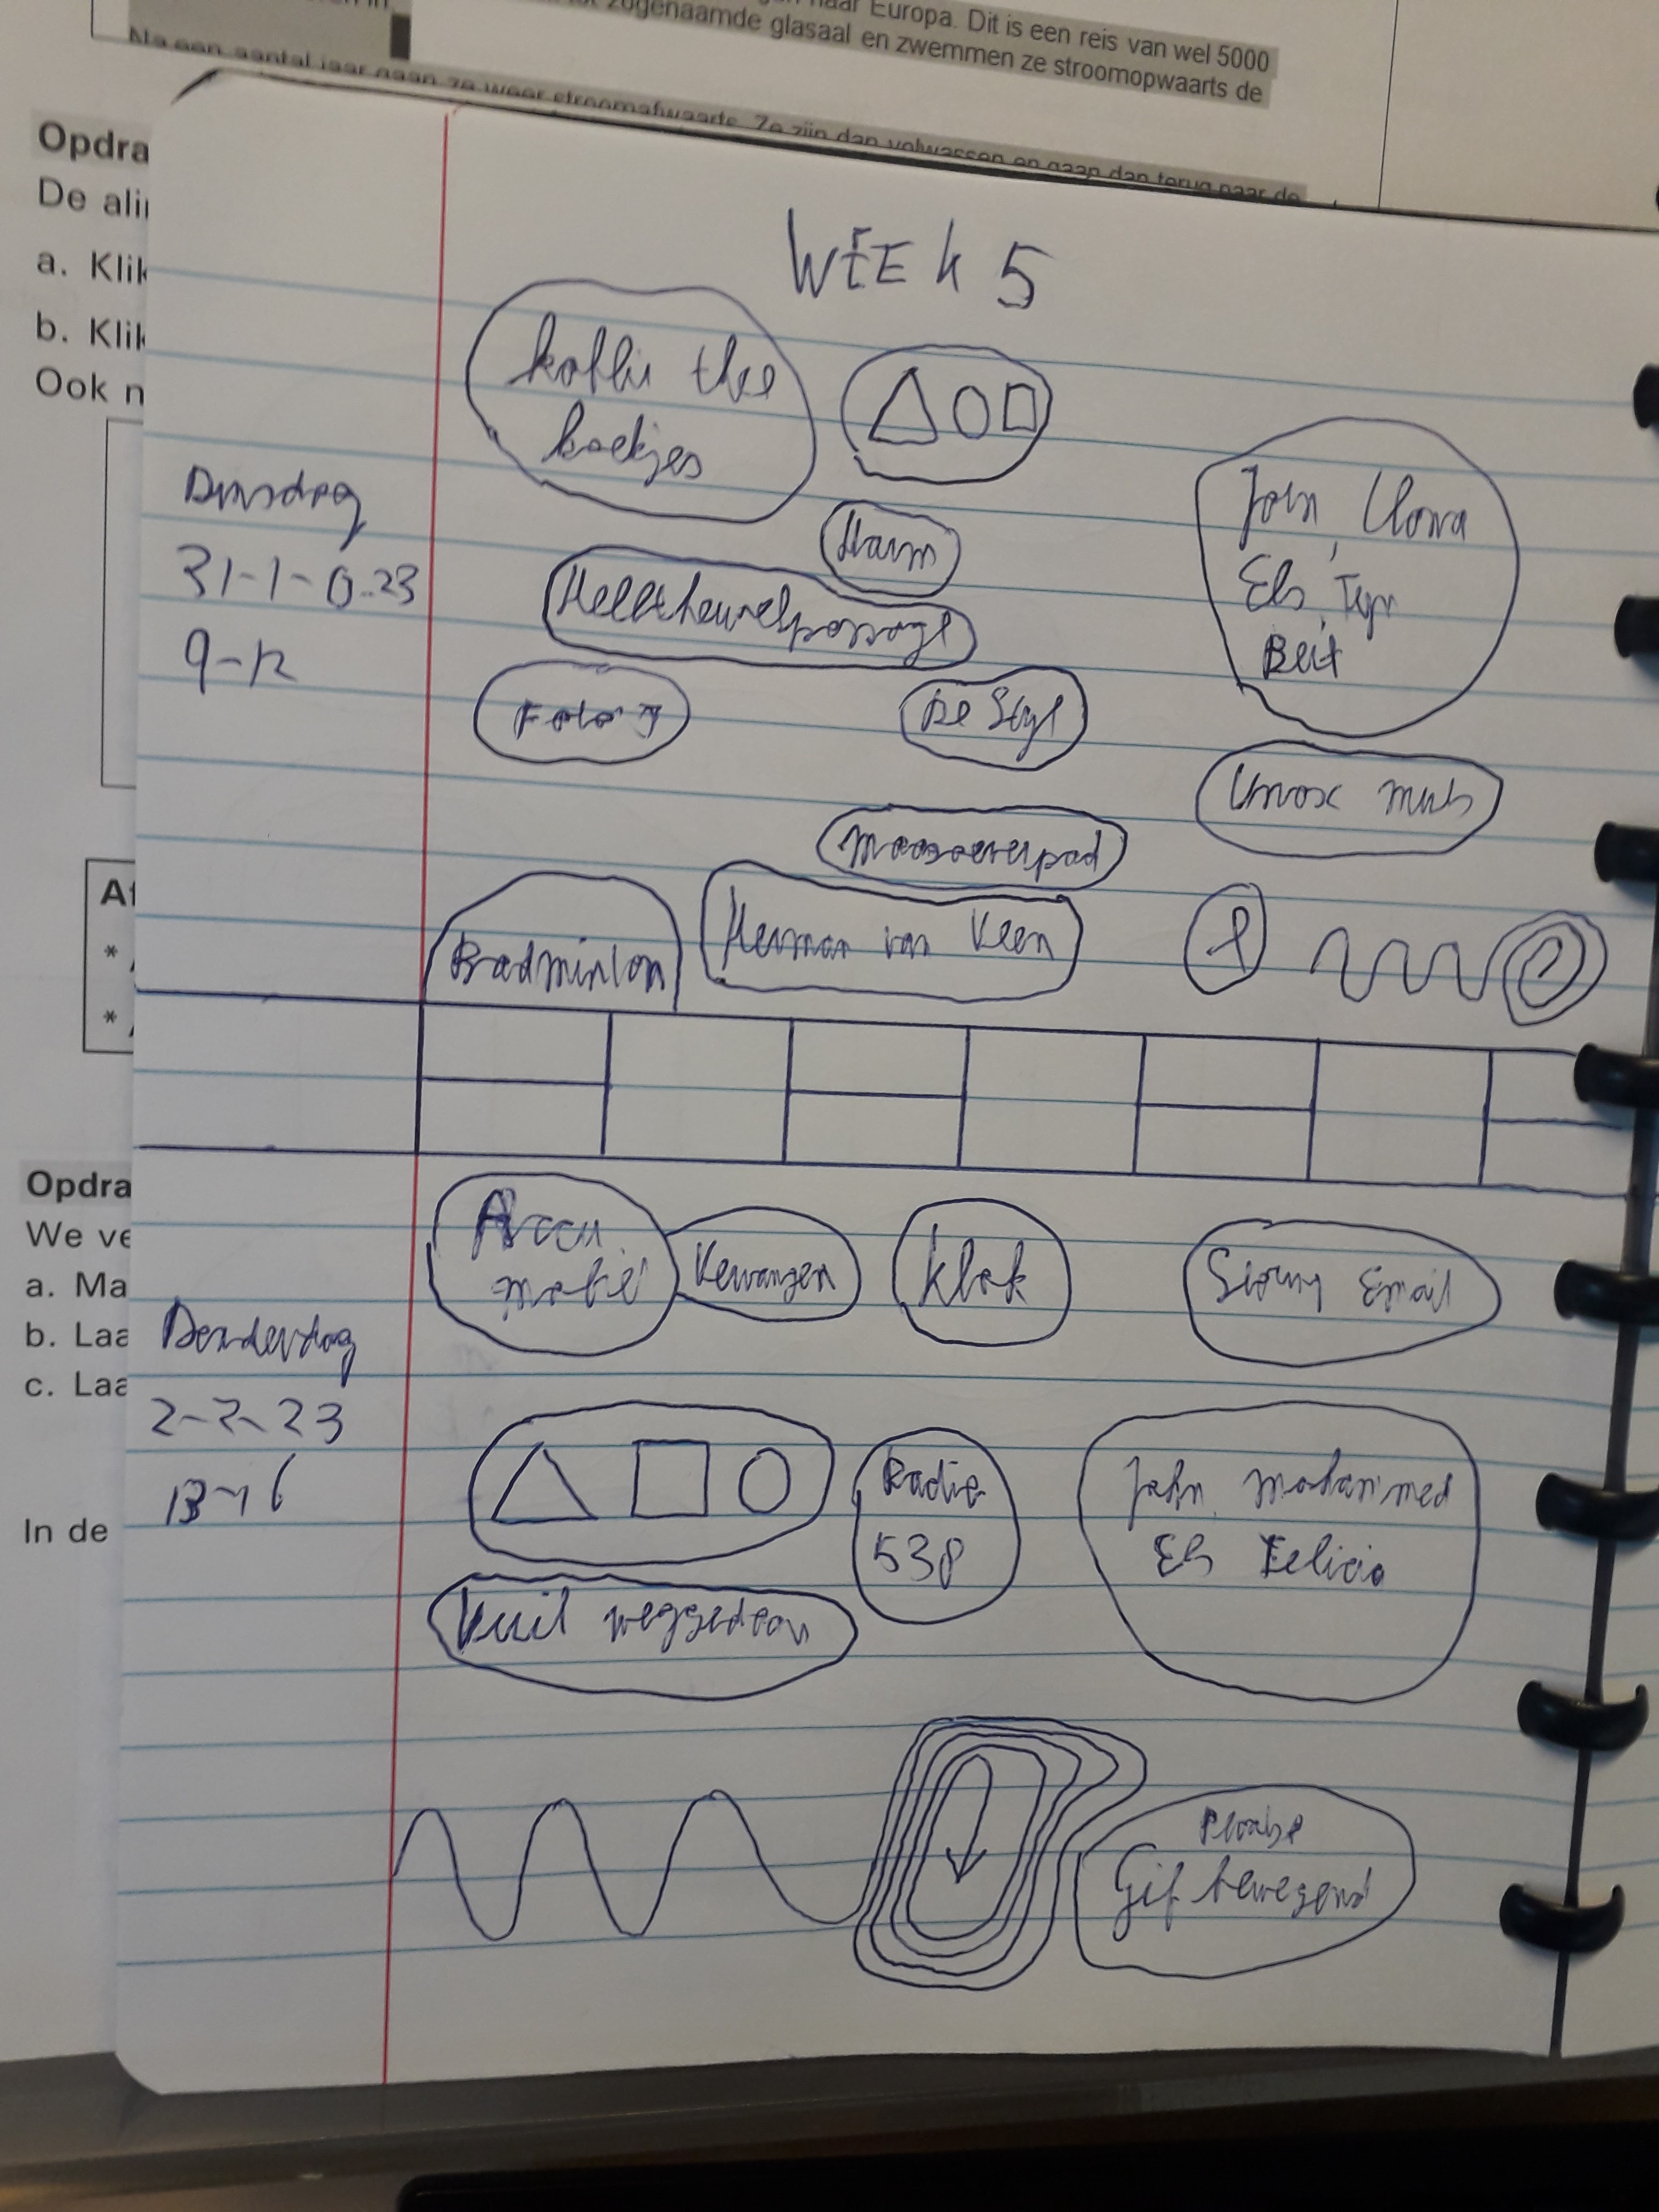 naar Europa. Dit is een reis van wel 5000
zogenaamde glasaal en zwemmen ze stroomopwaarts de
Na een aantal jaar gaan ze weer stroomafwaarts. Ze zijn dan volwassen en gaan dan terug naar de
Opdra
De ali
a. Klik
b. Klik
Ook n
WEEK 5
koffie thee
koekjes
Dinsdag
31-1-023
9-12
Harm
Els,
Foto's
Unox muts
Maasoeverpad
Badminton
Herman van Veen
*
*
Opdra
We ve
a. Ma
b. Laa
c. Laa
In de
Accu
mobiel
Vervangen
Klok
Email
Donderdag
2-2-23
13-16
Radio
538
John Mohammed
Els Felicia
Vuil weggedaan
Gif bewegend